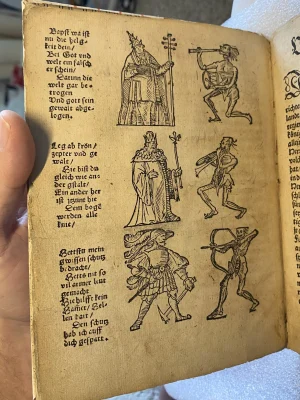 Bapst wa ist
nu die heyl-
kett dein /
Bei Got vnd
welt ein falsch
er schein /
Darum die
welt gar be-
trogen
Vnd gott sein
gewalt abge-
logen.
Leg ab kron /
zepter vnd ge
walt /
Hie bist du
gleich wie an-
der gstalt /
Ein ander her
ist yzunt die
Dem bogē
werden alle
knie /
Hettstu mein
gwissen
bedracht /
Hetts nit so
vil armer leut
gemacht
Hie hilfft kein
Harnet / Hel-
len part /
Den schutz
hab ich auff
dich gespart.